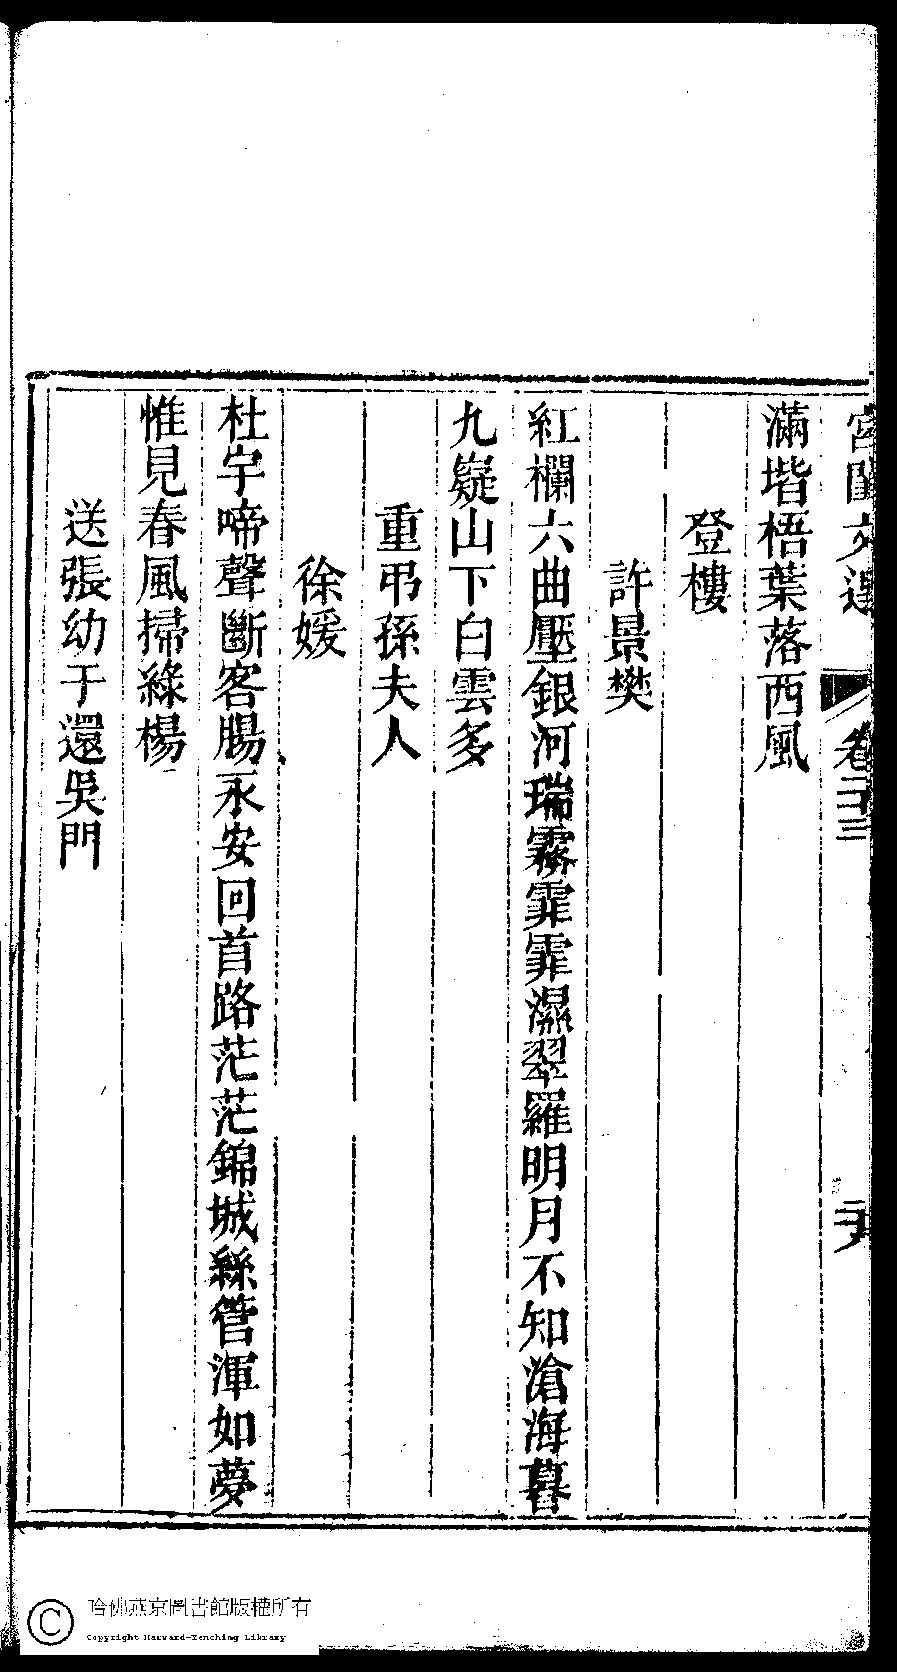 宮閨文選 卷二十三
滿堦梧葉落西風
登樓
許景樊
紅欄六曲壓銀河瑞霧霏霏濕翠羅明月不知滄海暮
九嶷山下白雲多
重弔孫夫人
徐媛
杜宇啼聲斷客腸永安回首路茫茫錦城絲管渾如夢
惟見春風掃綠楊
送張幼于還吳門
哈佛燕京圖書館版權所有
Copyright Harvard-Yenching Library